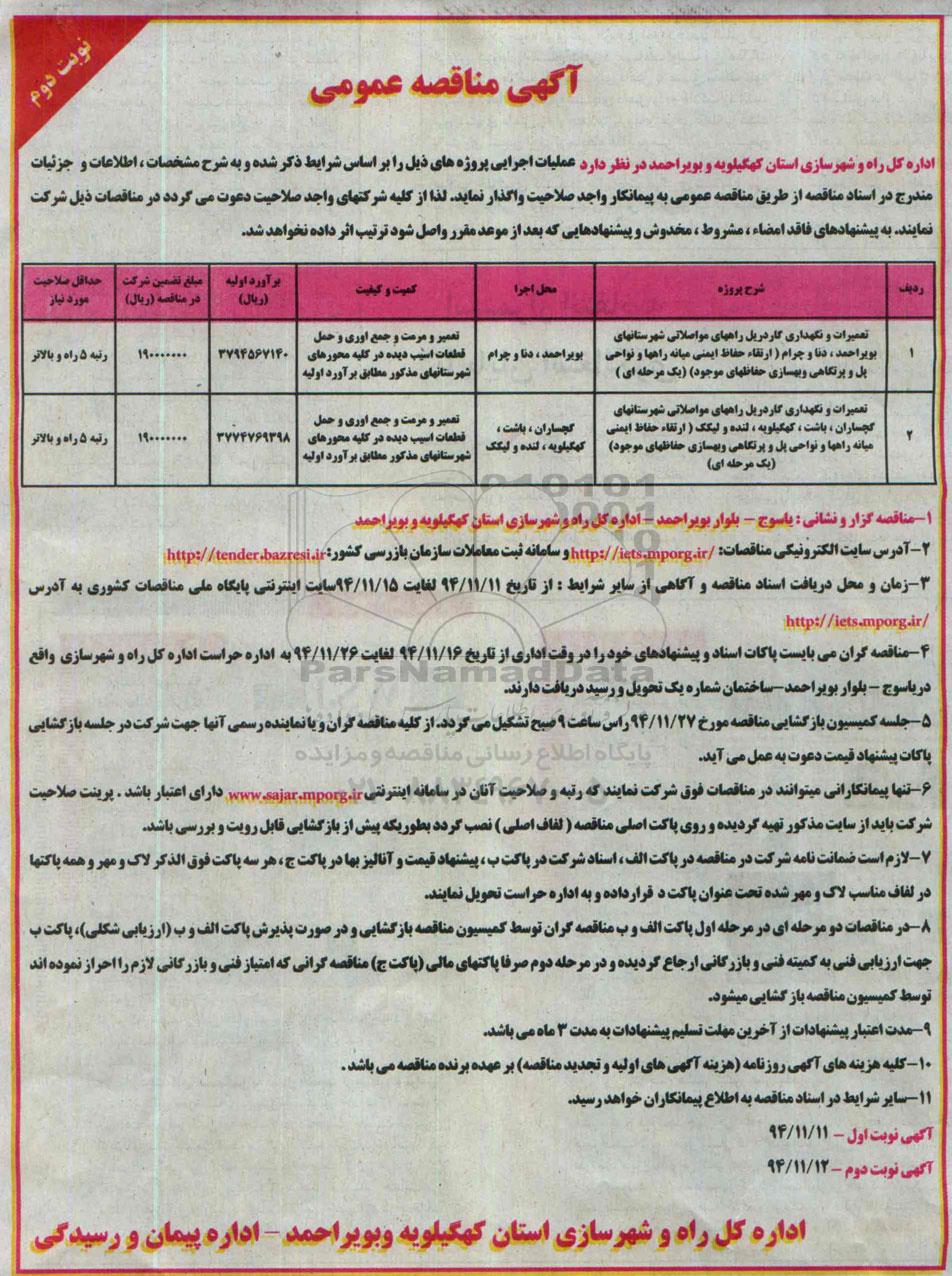 نوبت دوم
آگهی مناقصه عمومی
اداره کل راه و شهرسازی استان کهگیلویه و بویراحمد در نظر دارد عملیات اجرایی پروژه های ذیل را بر اساس شرایط ذکر شده و به شرح مشخصات ، اطلاعات و جزئیات
مندرج در اسناد مناقصه از طریق مناقصه عمومی به پیمانکار واجد صلاحیت واگذار نماید. لذا از کلیه شرکتهای واجد صلاحیت دعوت می گردد در مناقصات ذیل شرکت
نمایند. به پیشنهادهای فاقد امضاء ، مشروط ، مخدوش و پیشنهادهایی که بعد از موعد مقرر واصل شود ترتیب اثر داده نخواهد شد.
ردیف شرح پروژه محل اجرا کمیت و کیفیت برآورد اولیه (ریال) مبلغ تضمین شرکت در مناقصه (ریال) حداقل صلاحیت مورد نیاز
۱
تعمیرات و نگهداری گاردریل راههای مواصلاتی شهرستانهای
بویراحمد ، دنا و چرام ( ارتقاء حفاظ ایمنی میانه راهها و نواحی
پل و پرتگاهی وبهسازی حفاظهای موجود) (یک مرحله ای )
بویراحمد ، دنا و چرام
تعمیر و مرمت و جمع اوری و حمل
قطعات اسیب دیده در کلیه محورهای
شهرستانهای مذکور مطابق برآورد اولیه
۳۷۹۴۵۶۷۱۴۰
۱۹۰۰۰۰۰۰۰
رتبه ۵ راه و بالاتر
۲
تعمیرات و نگهداری گاردریل راههای مواصلاتی شهرستانهای
گچساران ، باشت ، کهگیلویه ، لنده و لیکک ( ارتقاء حفاظ ایمنی
میانه راهها و نواحی پل و پرتگاهی وبهسازی حفاظهای موجود)
(یک مرحله ای)
گچساران ، باشت ،
کهگیلویه ، لنده و لیکک
تعمیر و مرمت و جمع اوری و حمل
قطعات اسیب دیده در کلیه محورهای
شهرستانهای مذکور مطابق برآورد اولیه
۳۷۷۴۷۶۹۳۹۸
۱۹۰۰۰۰۰۰۰
رتبه ۵ راه و بالاتر
۱-مناقصه گزار و نشانی : یاسوج – بلوار بویراحمد – اداره کل راه و شهرسازی استان کهگیلویه و بویراحمد
۲-آدرس سایت الکترونیکی مناقصات: http://iets.mporg.ir/ و سامانه ثبت معاملات سازمان بازرسی کشور: http://tender.bazresi.ir
۳-زمان و محل دریافت اسناد مناقصه و آگاهی از سایر شرایط : از تاریخ ۹۴/۱۱/۱۱ لغایت ۹۴/۱۱/۱۵سایت اینترنتی پایگاه ملی مناقصات کشوری به آدرس
http://iets.mporg.ir/
۴-مناقصه گران می بایست پاکات اسناد و پیشنهادهای خود را در وقت اداری از تاریخ ۹۴/۱۱/۱۶ لغایت ۹۴/۱۱/۲۶ به اداره حراست اداره کل راه و شهرسازی واقع
دریاسوج – بلوار بویراحمد–ساختمان شماره یک تحویل و رسید دریافت دارند.
۵-جلسه کمیسیون بازگشایی مناقصه مورخ ۹۴/۱۱/۲۷ راس ساعت ۹ صبح تشکیل می گردد. از کلیه مناقصه گران و یا نماینده رسمی آنها جهت شرکت در جلسه بازگشایی
پاکات پیشنهاد قیمت دعوت به عمل می آید.
۶-تنها پیمانکارانی میتوانند در مناقصات فوق شرکت نمایند که رتبه و صلاحیت آنان در سامانه اینترنتی www.sajar.mporg.ir دارای اعتبار باشد . پرینت صلاحیت
شرکت باید از سایت مذکور تهیه گردیده و روی پاکت اصلی مناقصه ( لفاف اصلی ) نصب گردد بطوریکه پیش از بازگشایی قابل رویت و بررسی باشد.
۷-لازم است ضمانت نامه شرکت در مناقصه در پاکت الف ، اسناد شرکت در پاکت ب ، پیشنهاد قیمت و آنالیز بها در پاکت ج ، هر سه پاکت فوق الذکر لاک و مهر و همه پاکتها
در لفاف مناسب لاک و مهر شده تحت عنوان پاکت د قرارداده و به اداره حراست تحویل نمایند.
۸-در مناقصات دو مرحله ای در مرحله اول پاکت الف و ب مناقصه گران توسط کمیسیون مناقصه بازگشایی و در صورت پذیرش پاکت الف و ب (ارزیابی شکلی)، پاکت ب
جهت ارزیابی فنی به کمیته فنی و بازرگانی ارجاع گردیده و در مرحله دوم صرفا پاکتهای مالی (پاکت ج) مناقصه گرانی که امتیاز فنی و بازرگانی لازم را احراز نموده اند
توسط کمیسیون مناقصه بازگشایی میشود.
۹-مدت اعتبار پیشنهادات از آخرین مهلت تسلیم پیشنهادات به مدت ۳ ماه می باشد.
۱۰-کلیه هزینه های آگهی روزنامه (هزینه آگهی های اولیه و تجدید مناقصه) بر عهده برنده مناقصه می باشد .
۱۱-سایر شرایط در اسناد مناقصه به اطلاع پیمانکاران خواهد رسید.
آگهی نوبت اول – ۹۴/۱۱/۱۱
آگهی نوبت دوم – ۹۴/۱۱/۱۲
اداره کل راه و شهرسازی استان کهگیلویه وبویراحمد – اداره پیمان و رسیدگی
ParsNamadData
پایگاه اطلاع رسانی مناقصه و مزایده